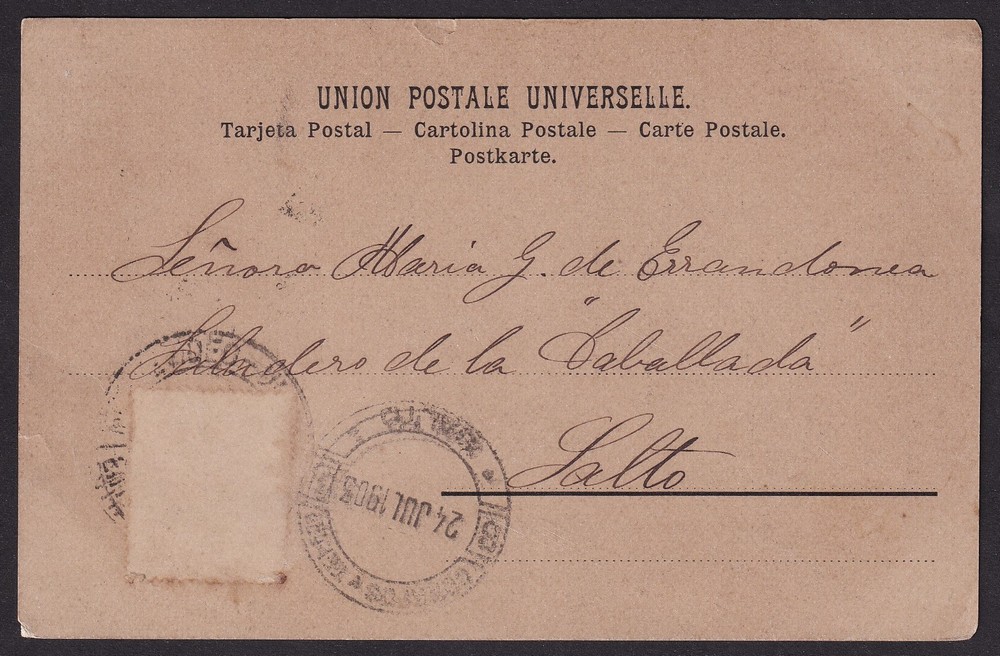 UNION POSTALE UNIVERSELLE.
Tarjeta Postal — Cartolina Postale — Carte Postale.
Postkarte.
Señora Maria G. de Errandonea
Saladero de la "Caballada"
Salto
SALTO
24 JUL 1903